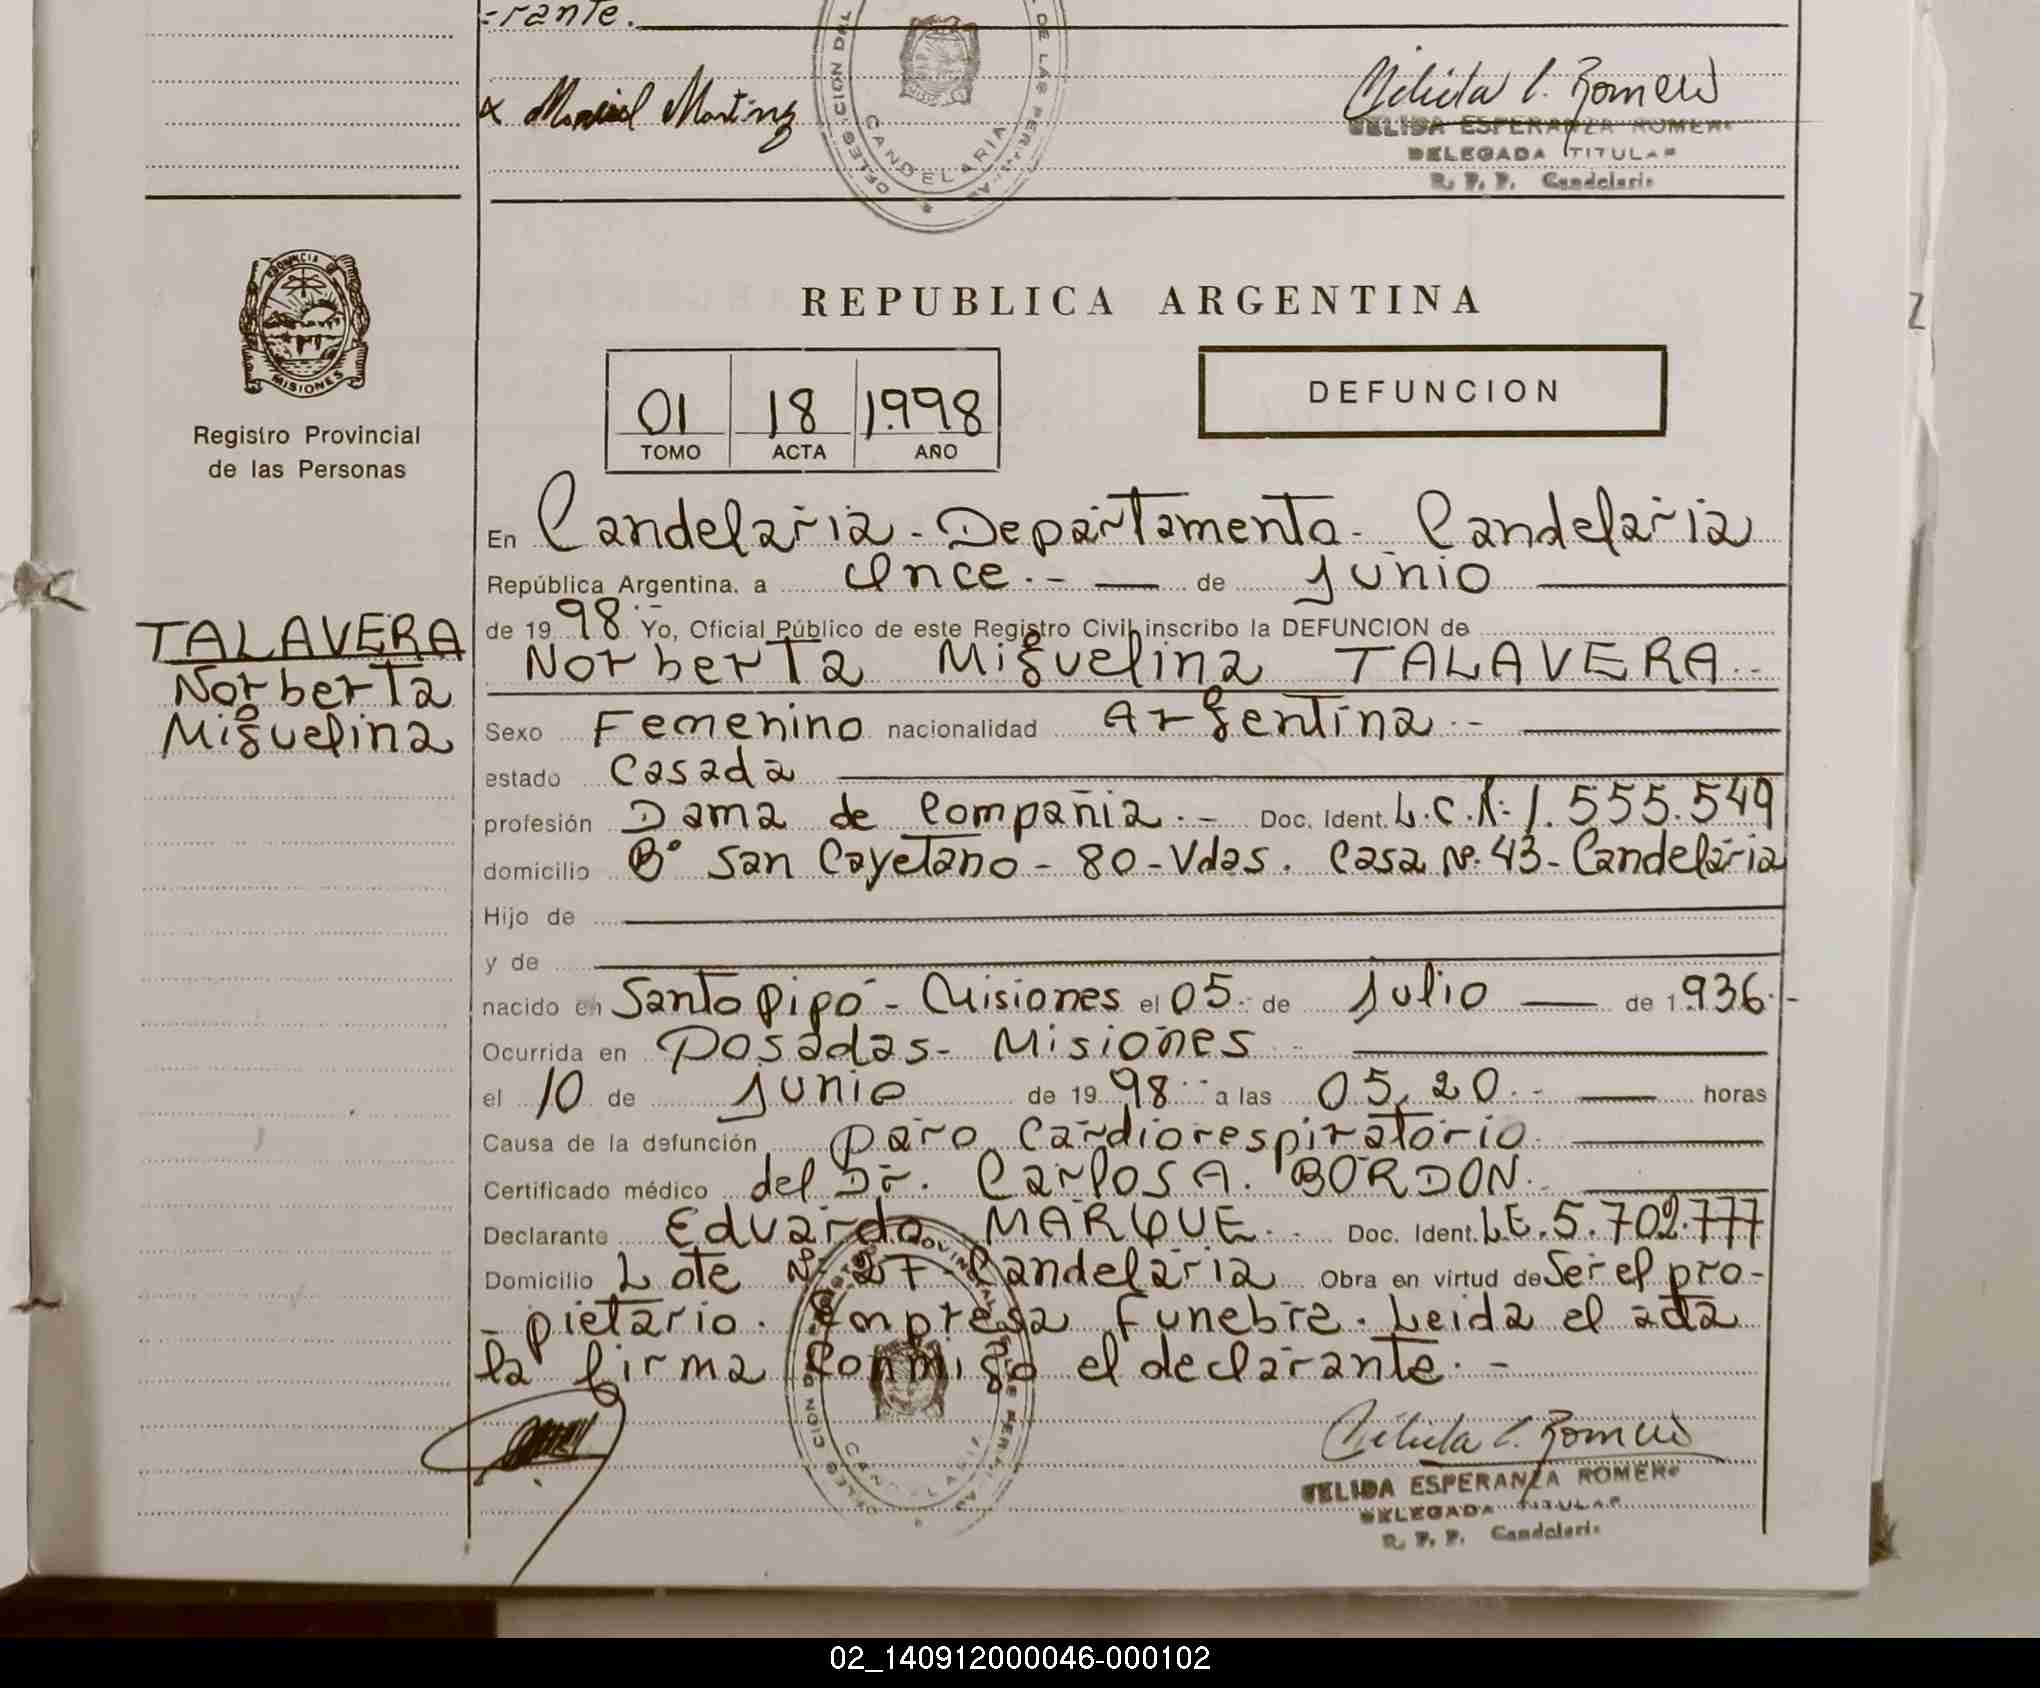 -rante.
x Marcial Martinez
CANDELARIA
Celida E. Romero
CELIDA ESPERANZA ROMERO
DELEGADA TITULAR
R. P. P. Candelaria
PROVINCIA DE
MISIONES
Registro Provincial
de las Personas
REPUBLICA ARGENTINA
01 18 1.998
TOMO ACTA AÑO
DEFUNCION
En Candelaria - Departamento - Candelaria
República Argentina, a Once.- de Junio
de 1998.- Yo, Oficial Público de este Registro Civil inscribo la DEFUNCION de
TALAVERA
Norberta
Miguelina
Norberta Miguelina TALAVERA.-
Sexo Femenino nacionalidad Argentina.-
estado Casada
profesión Dama de Compañia.- Doc. Ident. L.C.N: 1.555.549
domicilio Bº San Cayetano - 80 - Vdas. Casa Nº. 43 - Candelaria
Hijo de
y de
nacido en Santo Pipó - Misiones el 05.- de Julio de 1.936.-
Ocurrida en Posadas - Misiones
el 10 de Junio de 1998.- a las 05,20.- horas
Causa de la defunción paro Cardiorespiratorio
Certificado médico del Dr. Carlos A. BORDON.
Declarante Eduardo MARQUE.- Doc. Ident. L.E. 5.702.777
Domicilio Lote Nº 27 - Candelaria Obra en virtud de Ser el pro-
-pietario. Empresa Funebre. Leida el acta
la firma Conmigo el declarante.-
Celida E. Romero
CELIDA ESPERANZA ROMERO
DELEGADA TITULAR
R. P. P. Candelaria
02_140912000046-000102